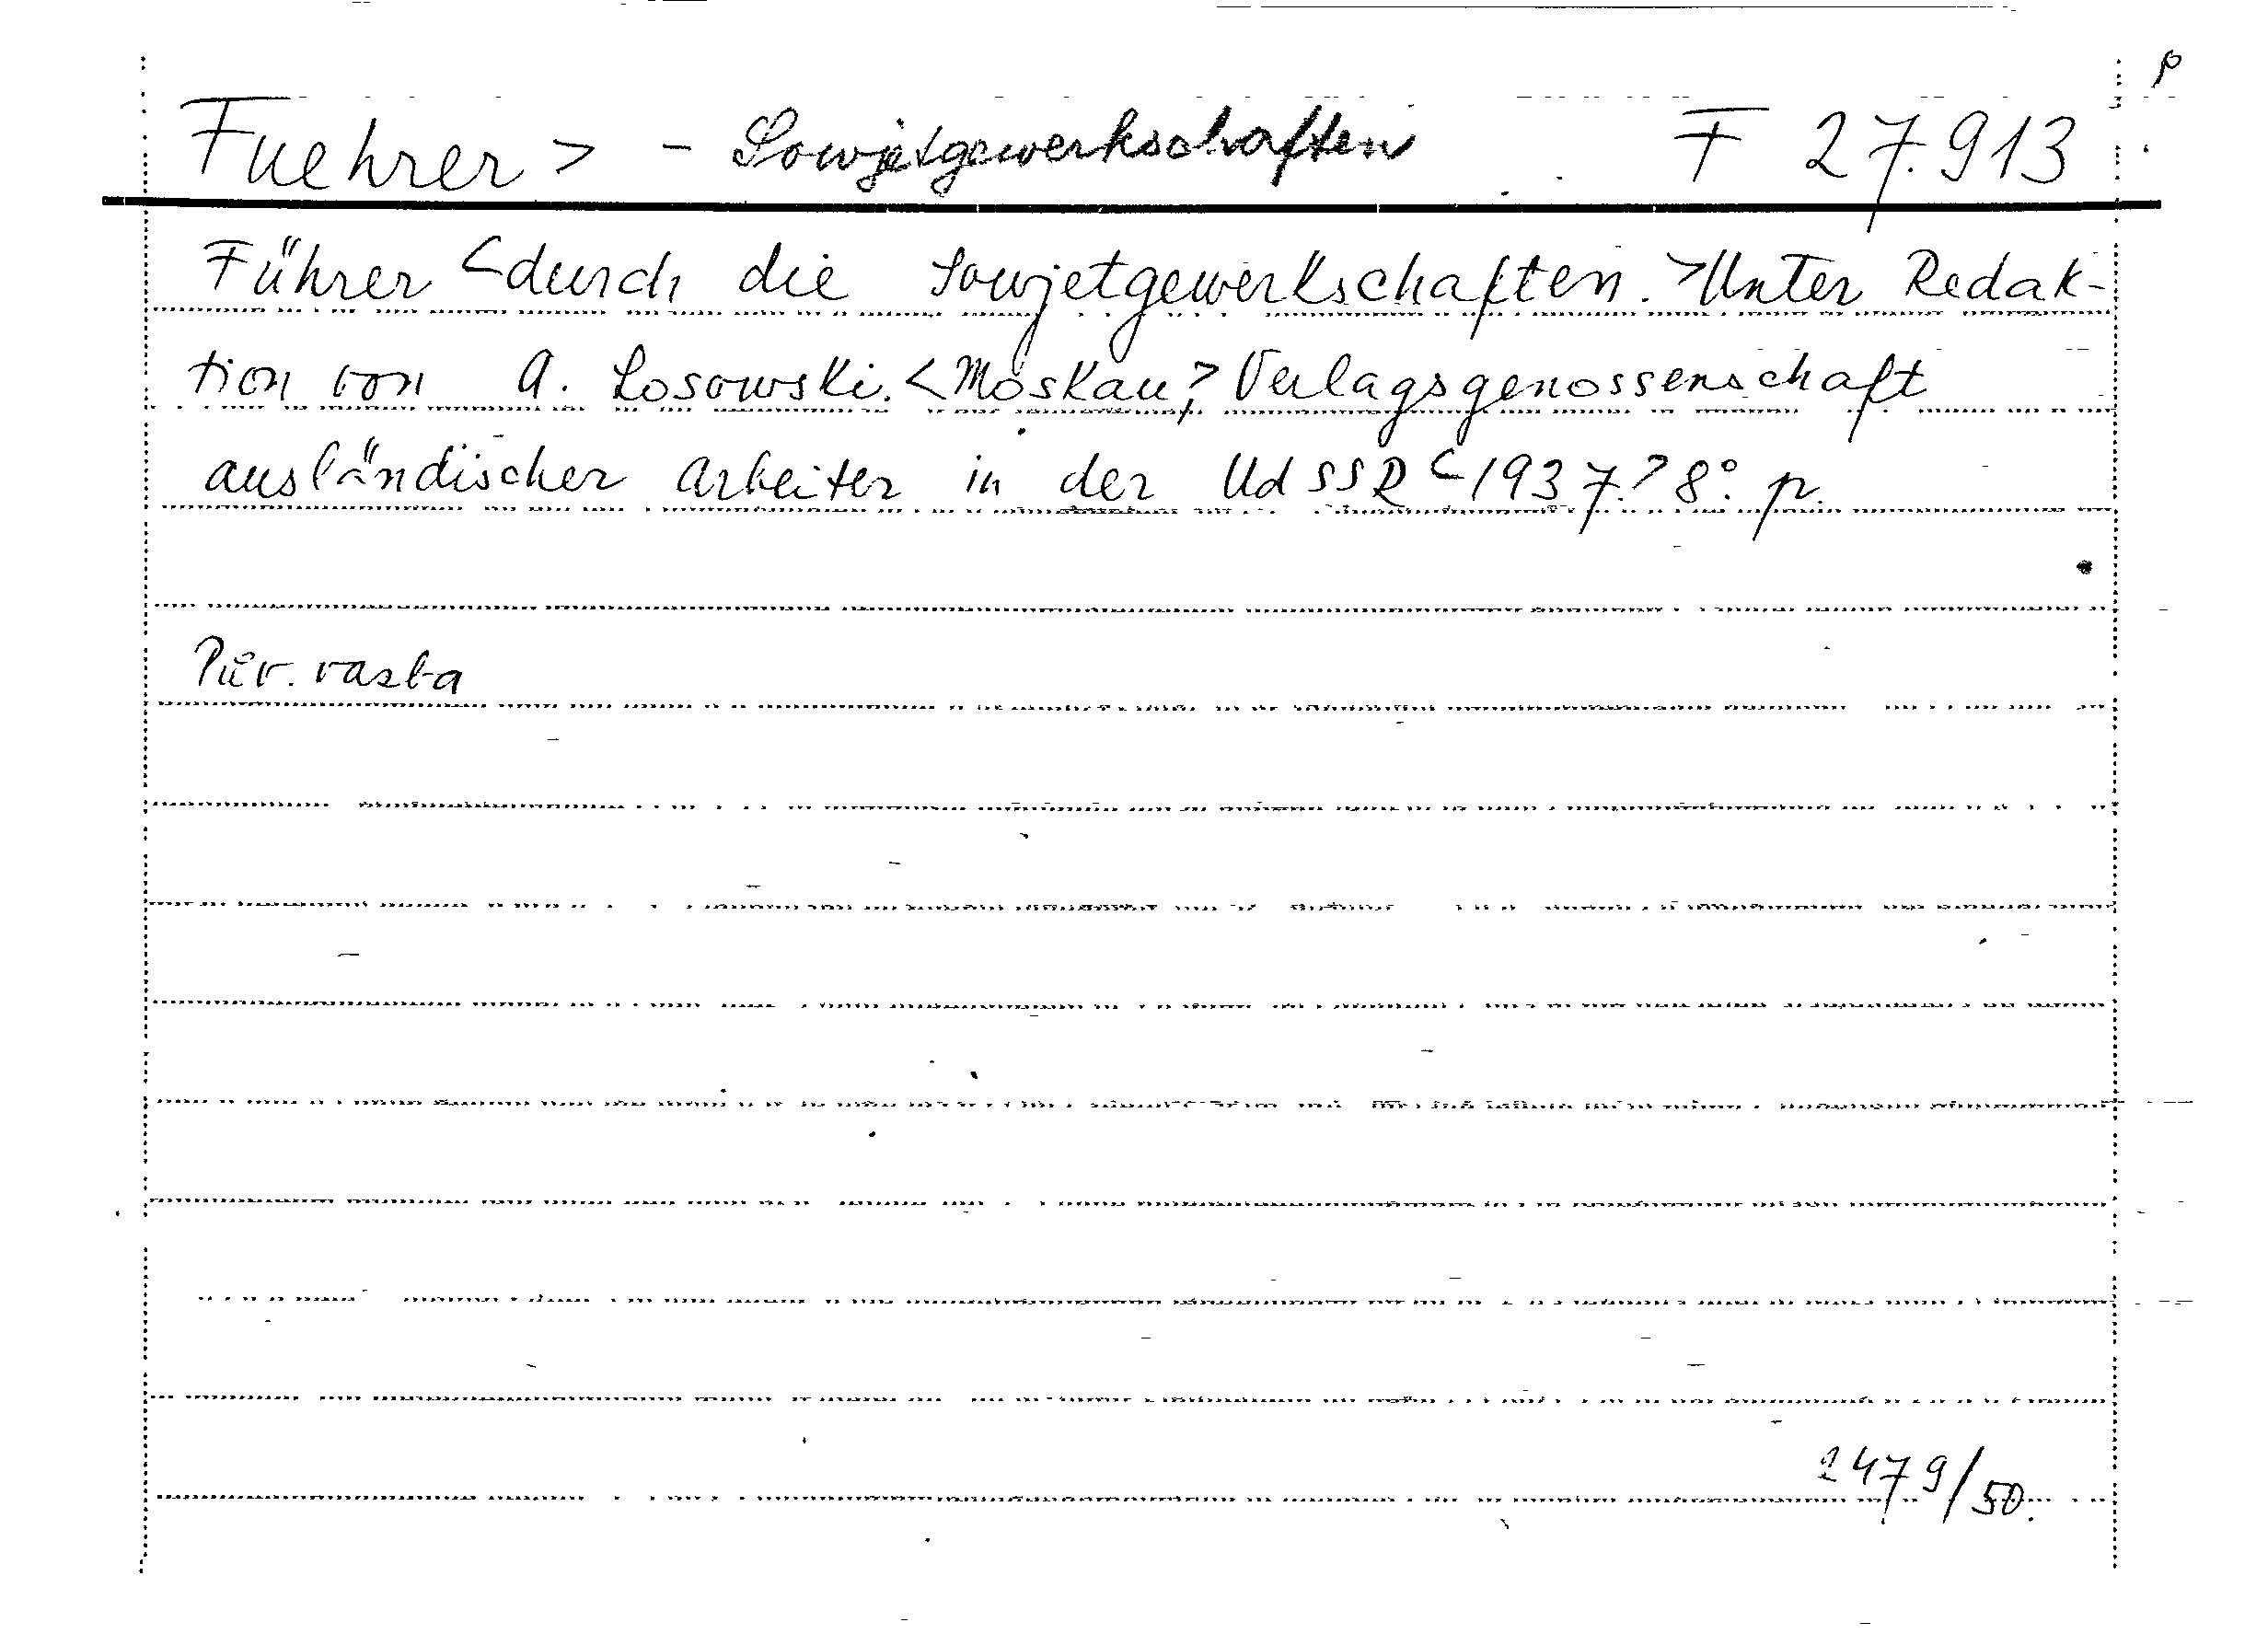 p
Fuehrer > - Sowjetgewerkschaften F 27.913
Führer <durch die Sowjetgewerkschaften.> Unter Redak-
tion von A. Losowski. <Moskau,> Verlagsgenossenschaft
ausländischer Arbeiter in der UdSSR <1937.> 8°. p.
Pův. vazba
2479/50.